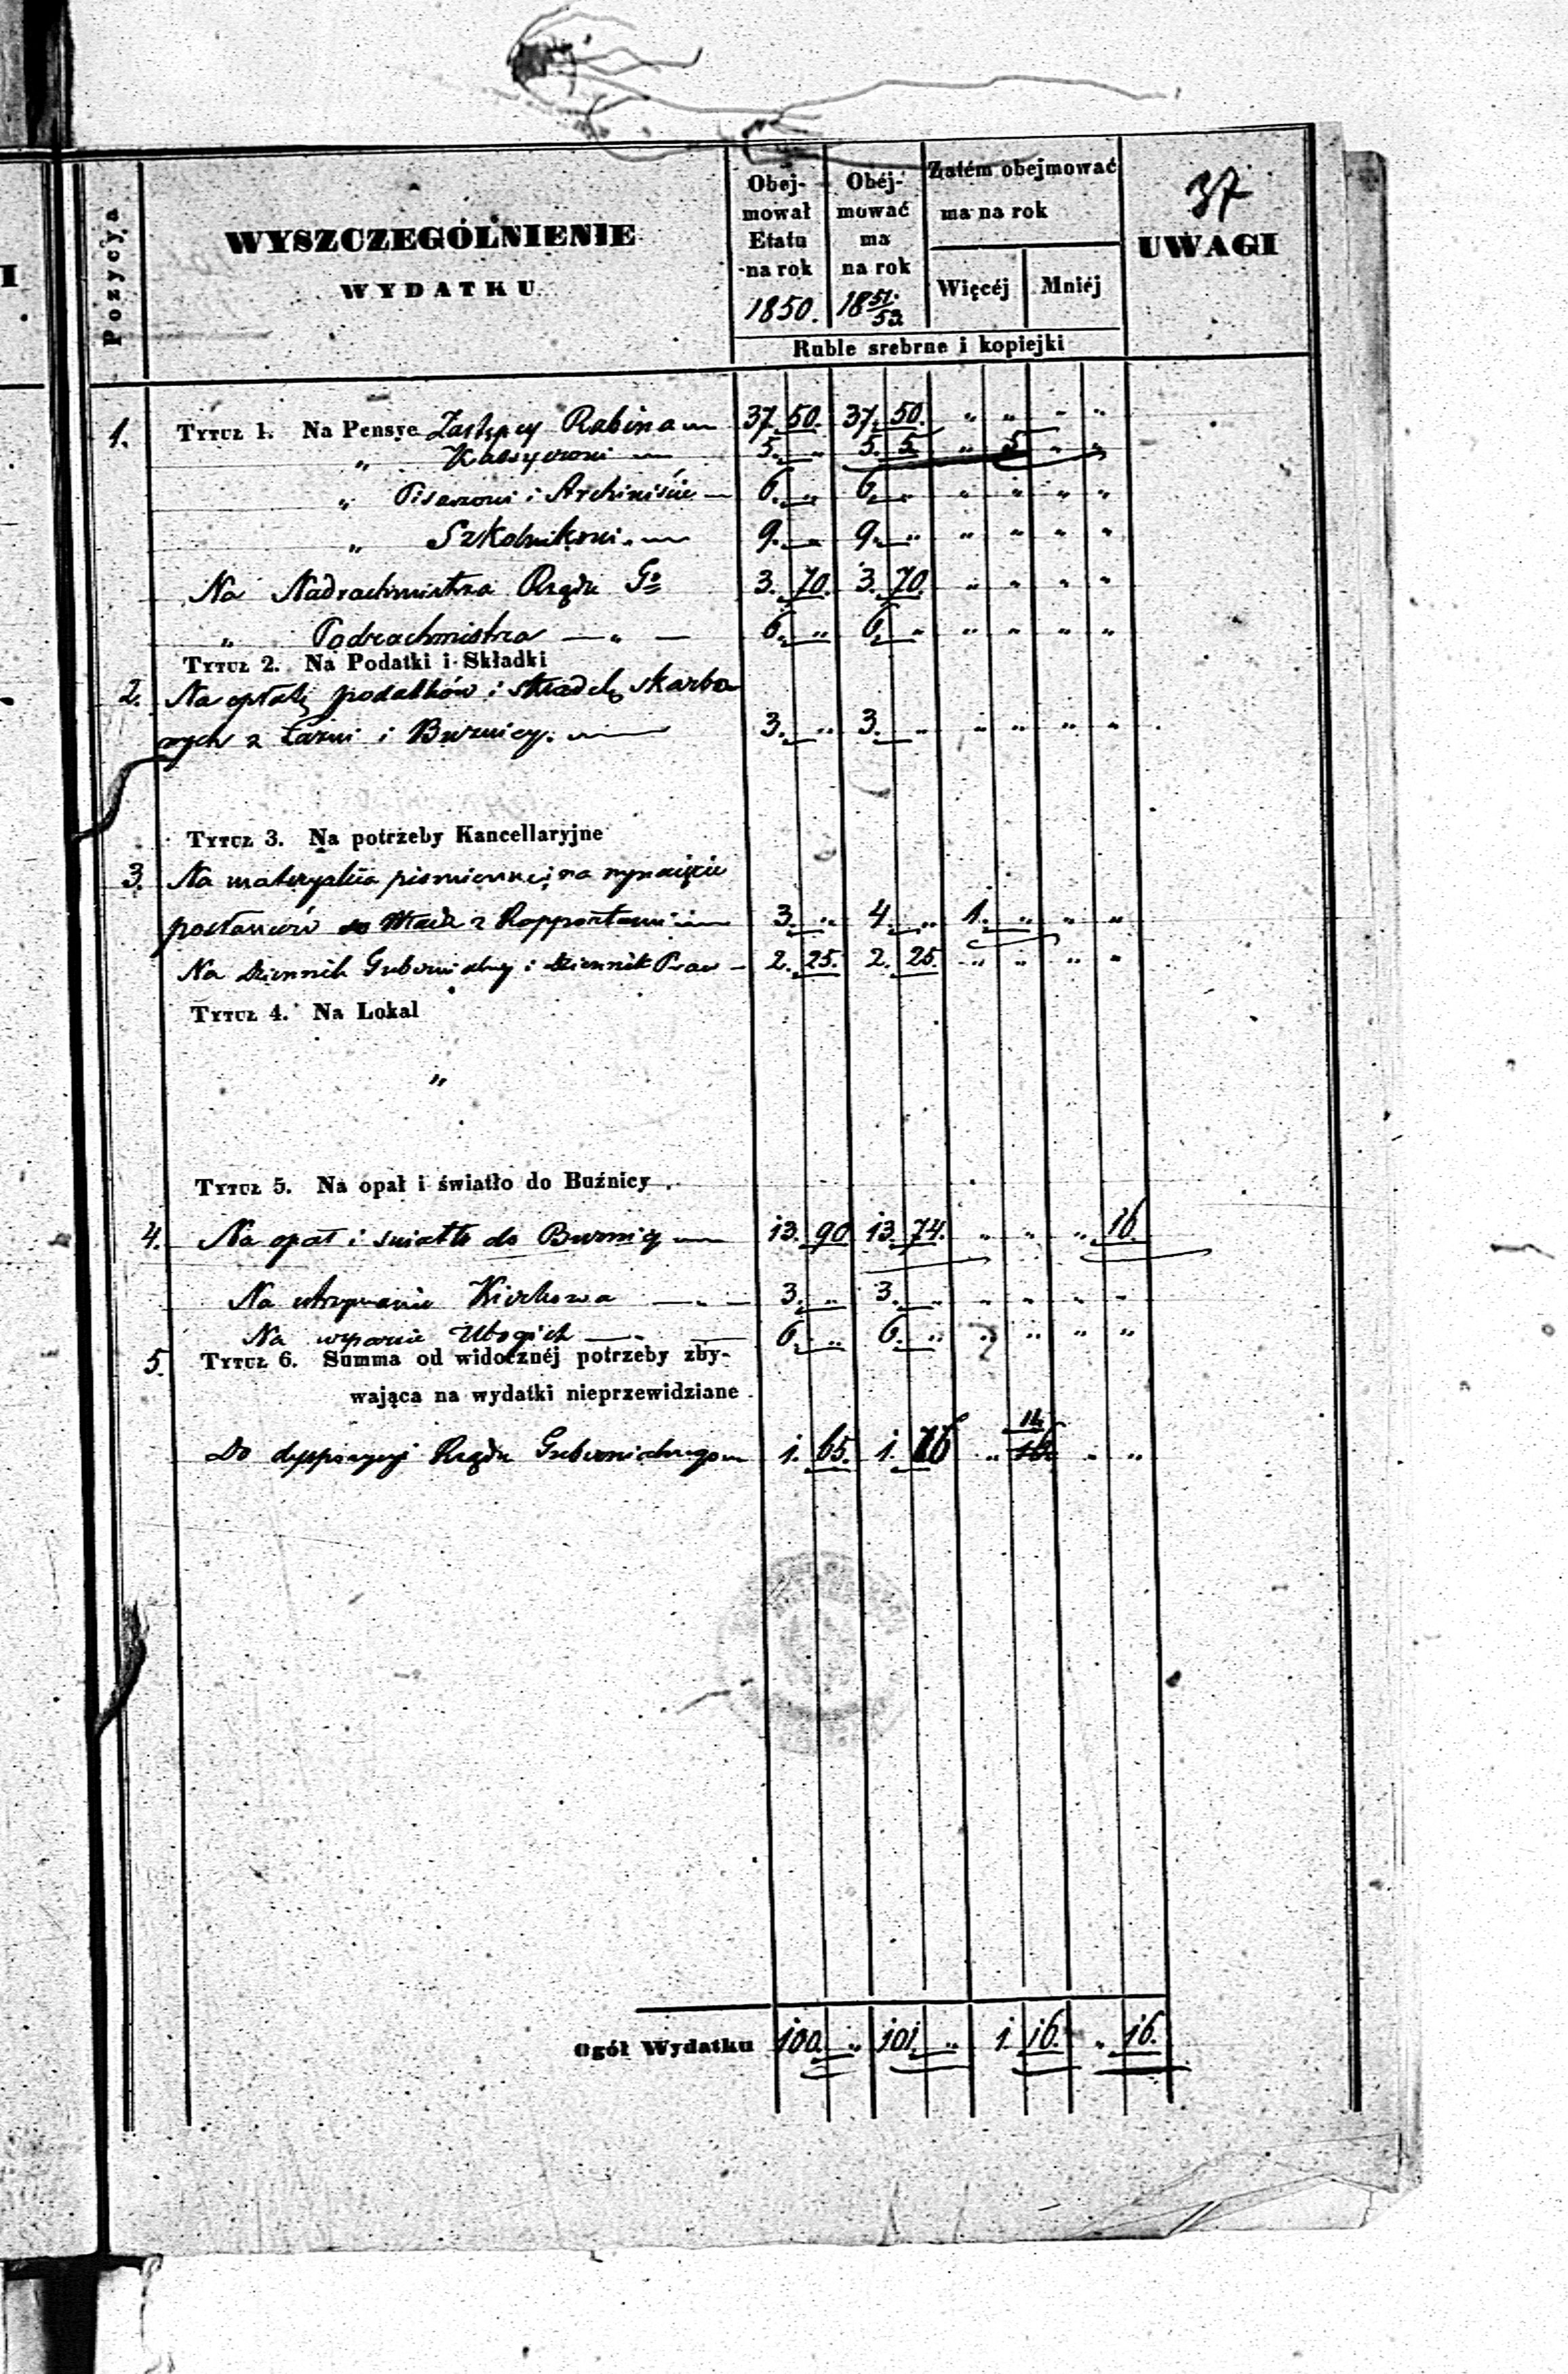 37
Pozycya
WYSZCZEGÓLNIENIE
WYDATKU
Obej-
mował
Etatu
na rok
1850.
Obéj-
mować
ma
na rok
18 51/53
Zatém obejmować
ma na rok
Więcéj
Mniéj
UWAGI
Ruble srebrne i kopiejki
1. Tytuł 1. Na Pensye Zastępcy Rabina 37. 50. 37. 50. " " " "
" Kassyerowi 5. " 5. 5. " 5 " "
" Pisarzowi i Archiwiście 6. " 6. " " " " "
" Szkolnikowi 9. " 9. " " " " "
Na Nadrachmistrza Rządu Go 3. 70. 3. 70. " " " "
" Podrachmistrza — " — 6. " 6. " " " " "
Tytuł 2. Na Podatki i Składki
2. Na opłatę podatków i składek skarbo
wych z Łaźni i Buznicy. 3. " 3. " " " " "
Tytuł 3. Na potrzeby Kancellaryjne
3. Na materyalia piśmienne i na
posłańców do Rapportami 3. " 4. " 1. " " "
Na Dziennik Gubernialny i Dziennik Praw 2. 25. 2. 25. " " " "
Tytuł 4. Na Lokal
"
Tytuł 5. Na opał i światło do Buźnicy
4. Na opał i światło do Buznicy 13. 90 13. 74. " " " 16.
Na utrzymanie Kirchowa — " — 3. " 3. " " " " "
Na wsparcie Ubogich — " — 6. " 6. " " " " "
5. Tytuł 6. Summa od widocznéj potrzeby zby-
wająca na wydatki nieprzewidziane
11.
Do dyspozycyi Rządu Gubernialnego 1. 65. 1. 76 " 16. " "
Ogół Wydatku 100. " 101. " 1. 16. " 16.